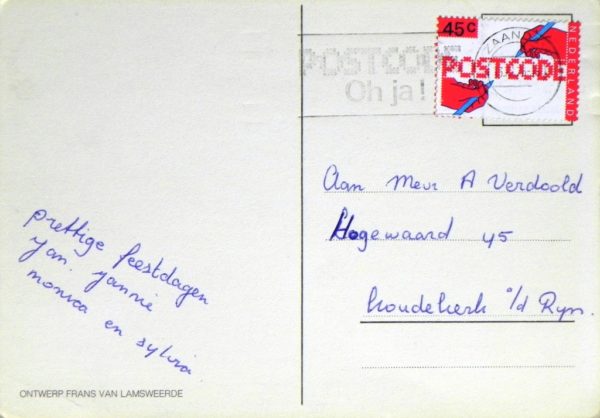 prettige feestdagen
Jan. Jannie
monica en sylvia
ONTWERP FRANS VAN LAMSWEERDE
POSTCODE
Oh ja!
45c
ZAAN
POSTCODE
NEDERLAND
Aan Mevr A Verdoold
Hogewaard 45
Koudekerk a/d Ryn.